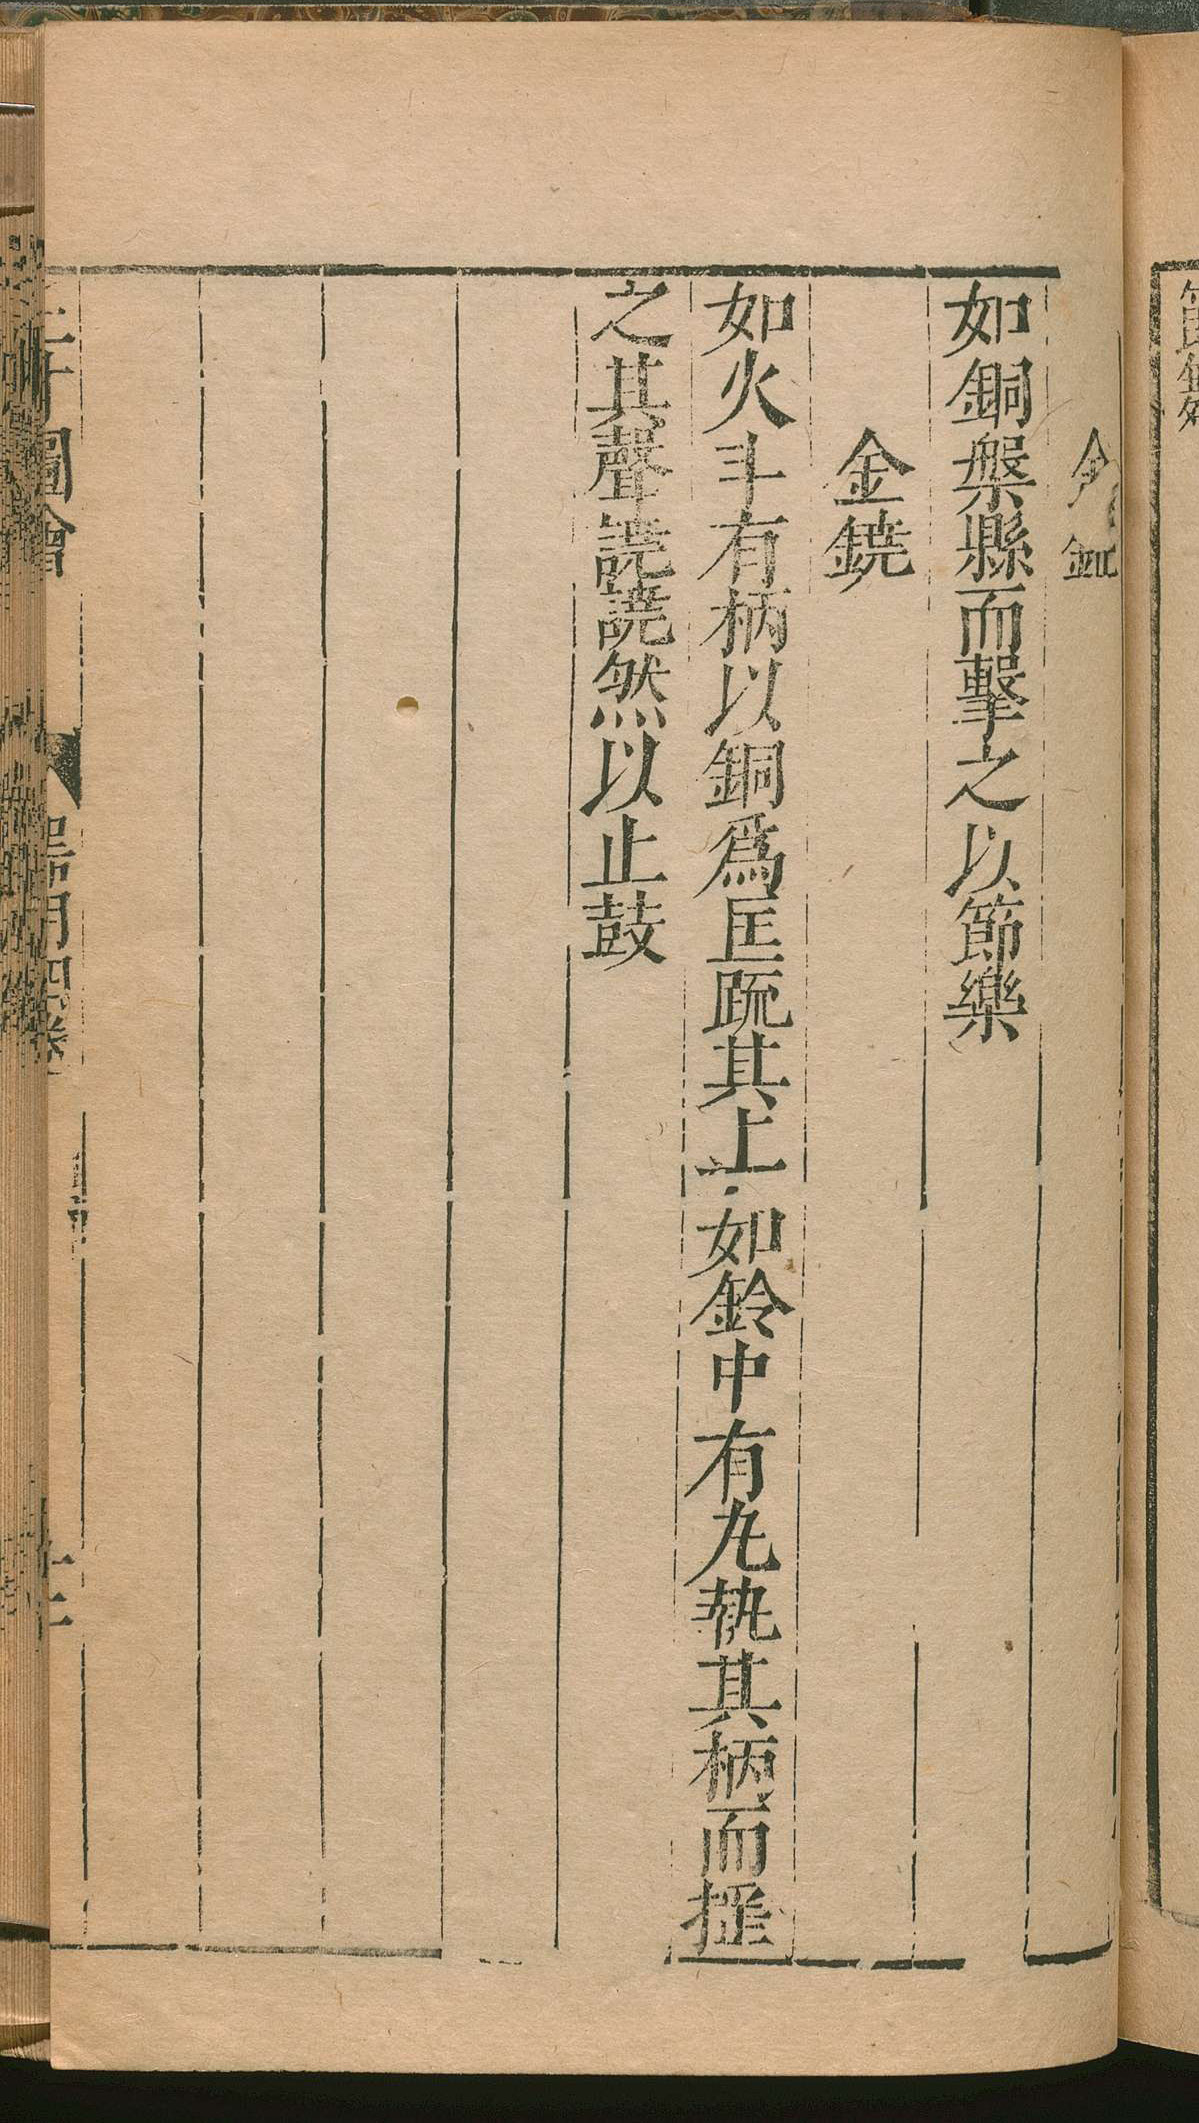 金鉦
如銅槃縣而擊之以節樂
金鐃
如火斗有柄以銅為匡疏其上如鈴中有丸執其柄而搖
之其聲譊譊然以止鼓
三才圖會
器用四卷